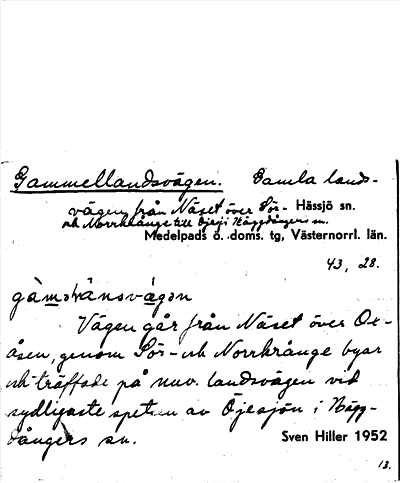 Gammellandsvägen. Gamla lands-
vägen från Näset över Sör- Hässjö sn.
och Norrkrånge till Öjesjö i Häggdångers sn.
Medelpads ö. doms. tg, Västernorrl. län.
43, 28.
Vägen går från Näset över Ox-
åsen, genom Sör- och Norrkrånge byar
och träffade på nuv. landsvägen vid
sydligaste spetsen av Öjesjön i Hägg-
dångers sn. Sven Hiller 1952
13.